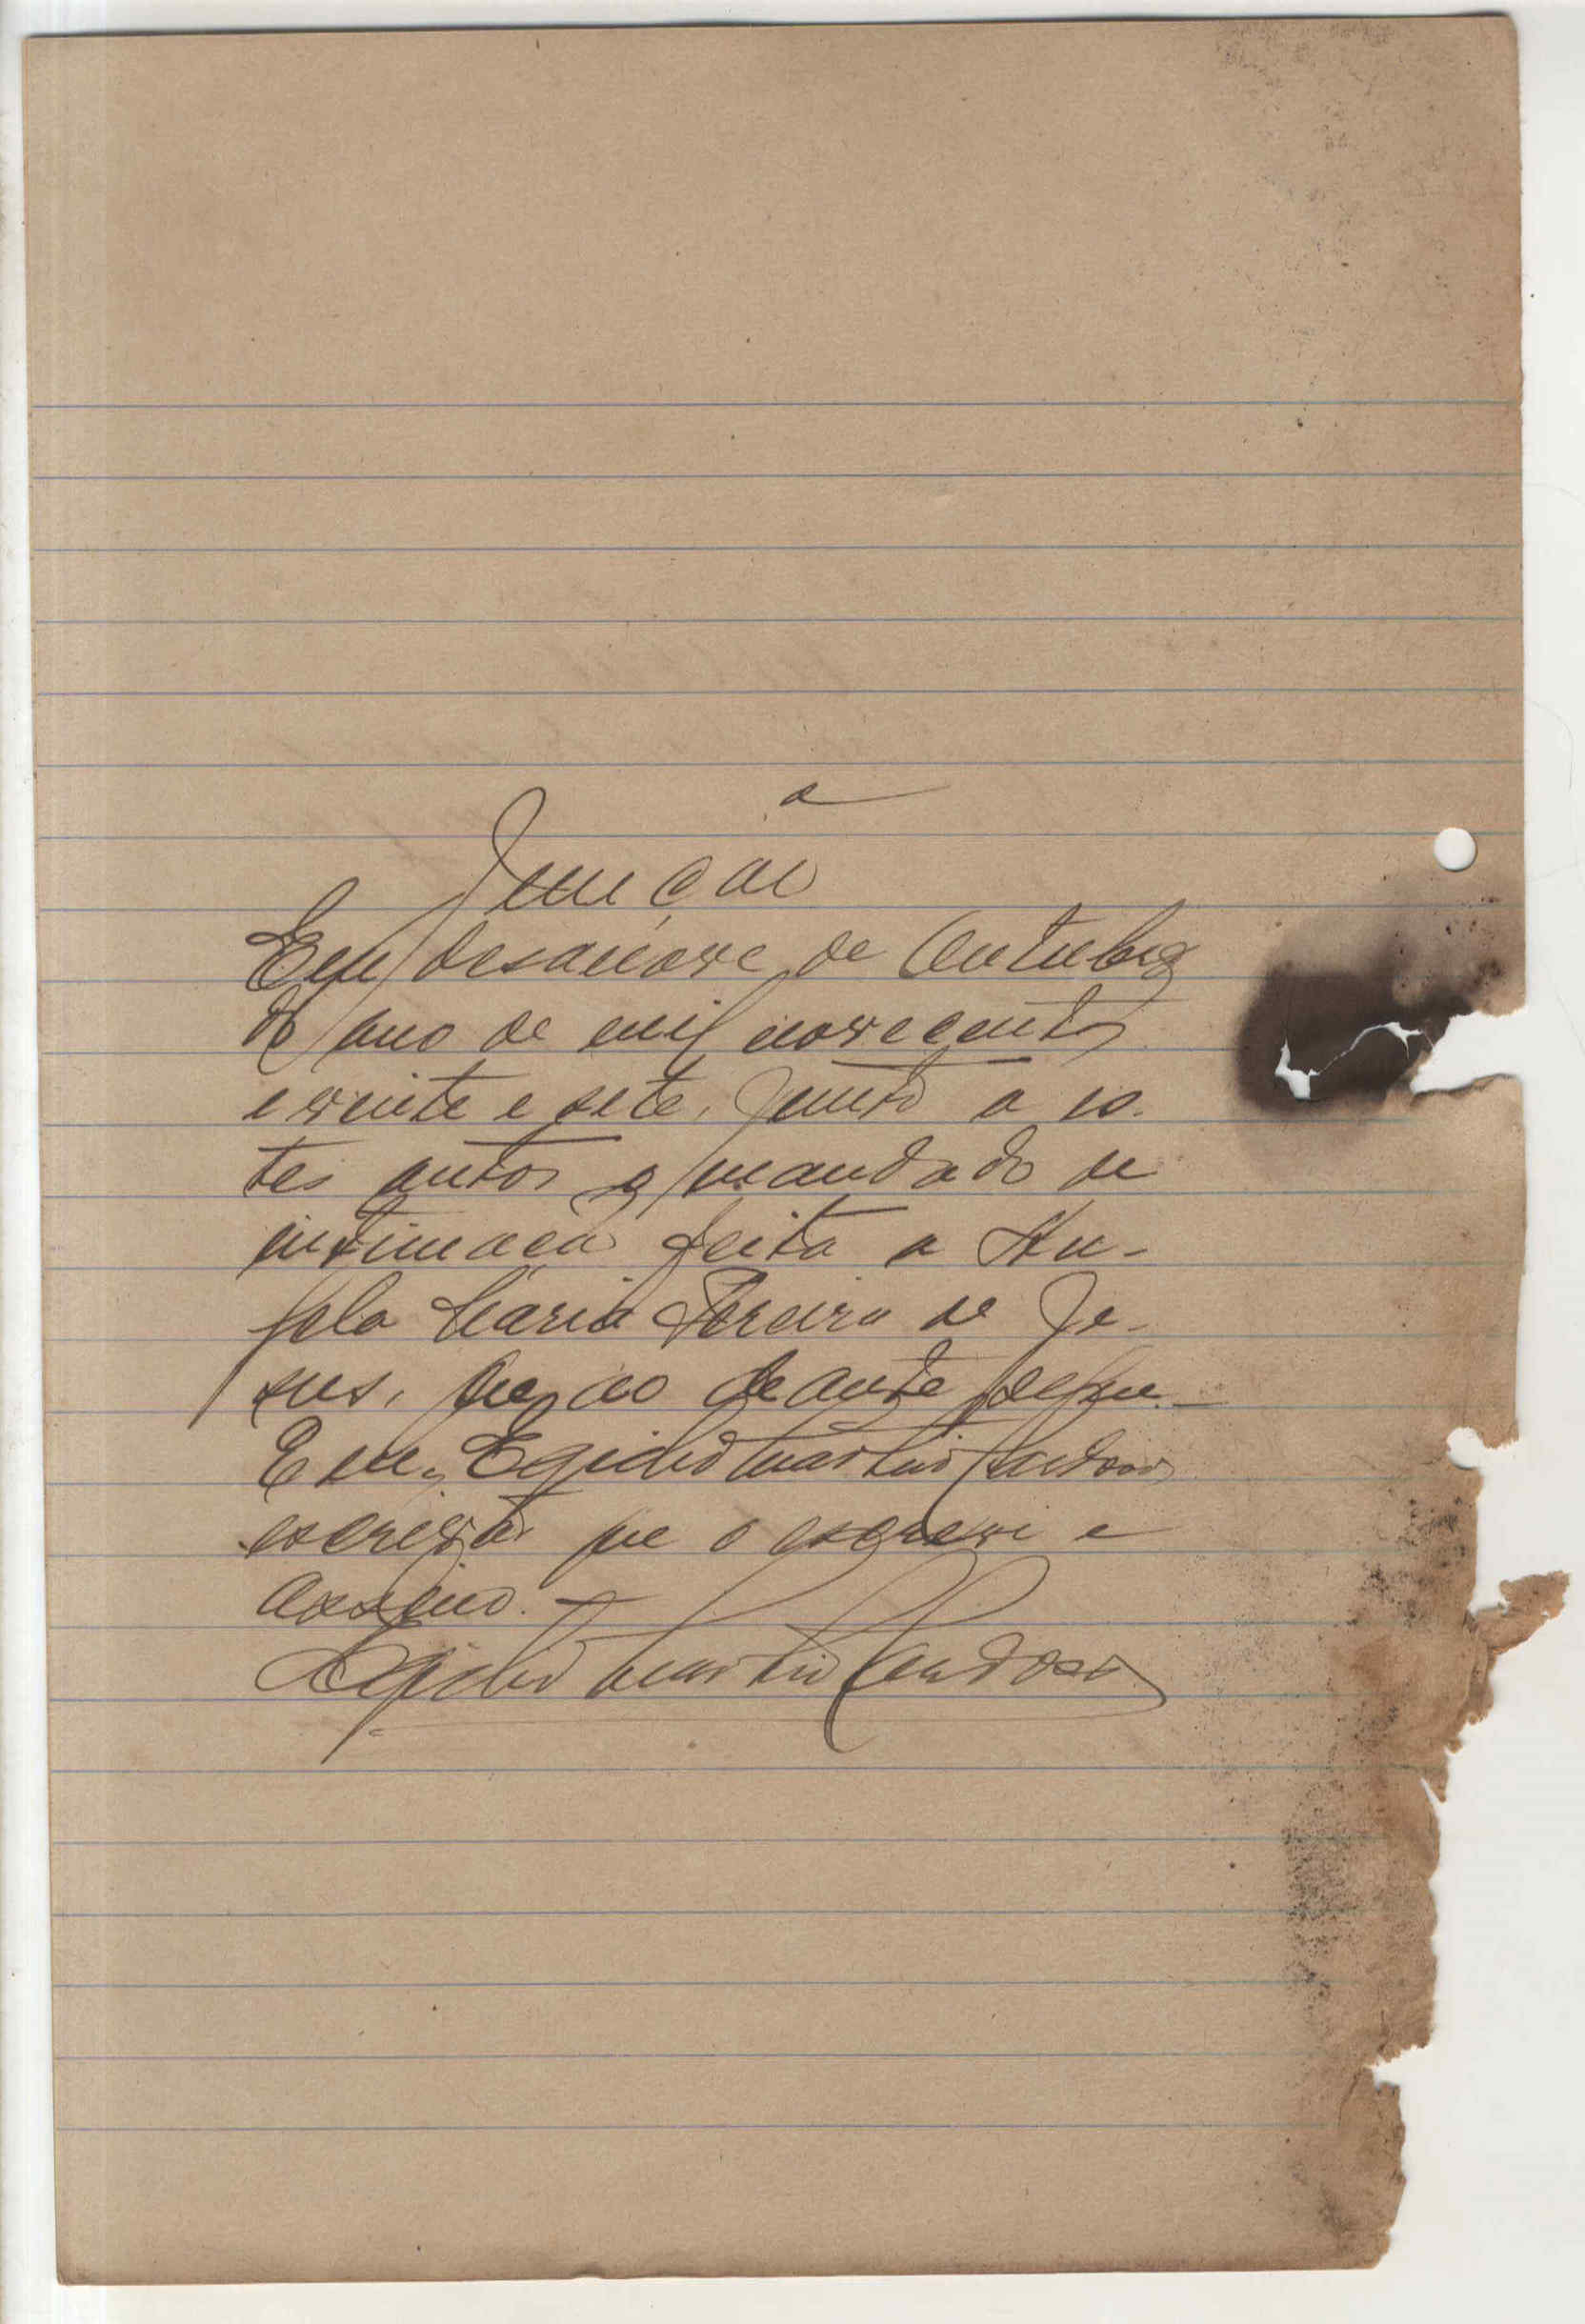 Junção
Em desanove de Outubro
do ano de mil novecentos
e vinte e sete, junto a es-
tes autos o mandado de
intimação feita a
Maria Pereira de Je-
sus, que ao deante segue.—
Eu, Egidio Martins Cardoso
escrivão que o escrevi e
assino.—
Egidio Martins Cardoso